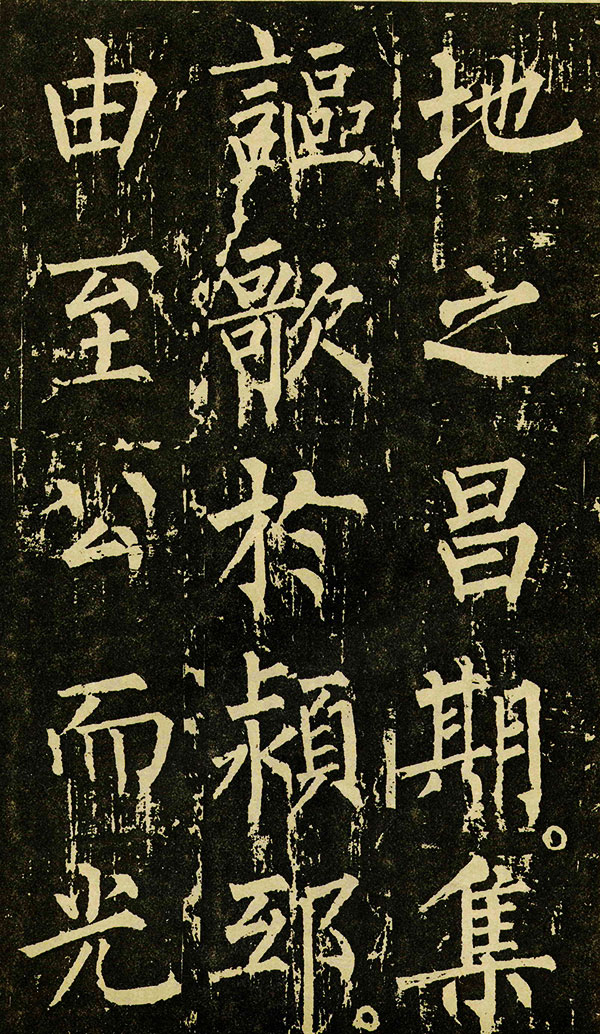 地之昌期。集
謳歌於潁邳。
由至公而光